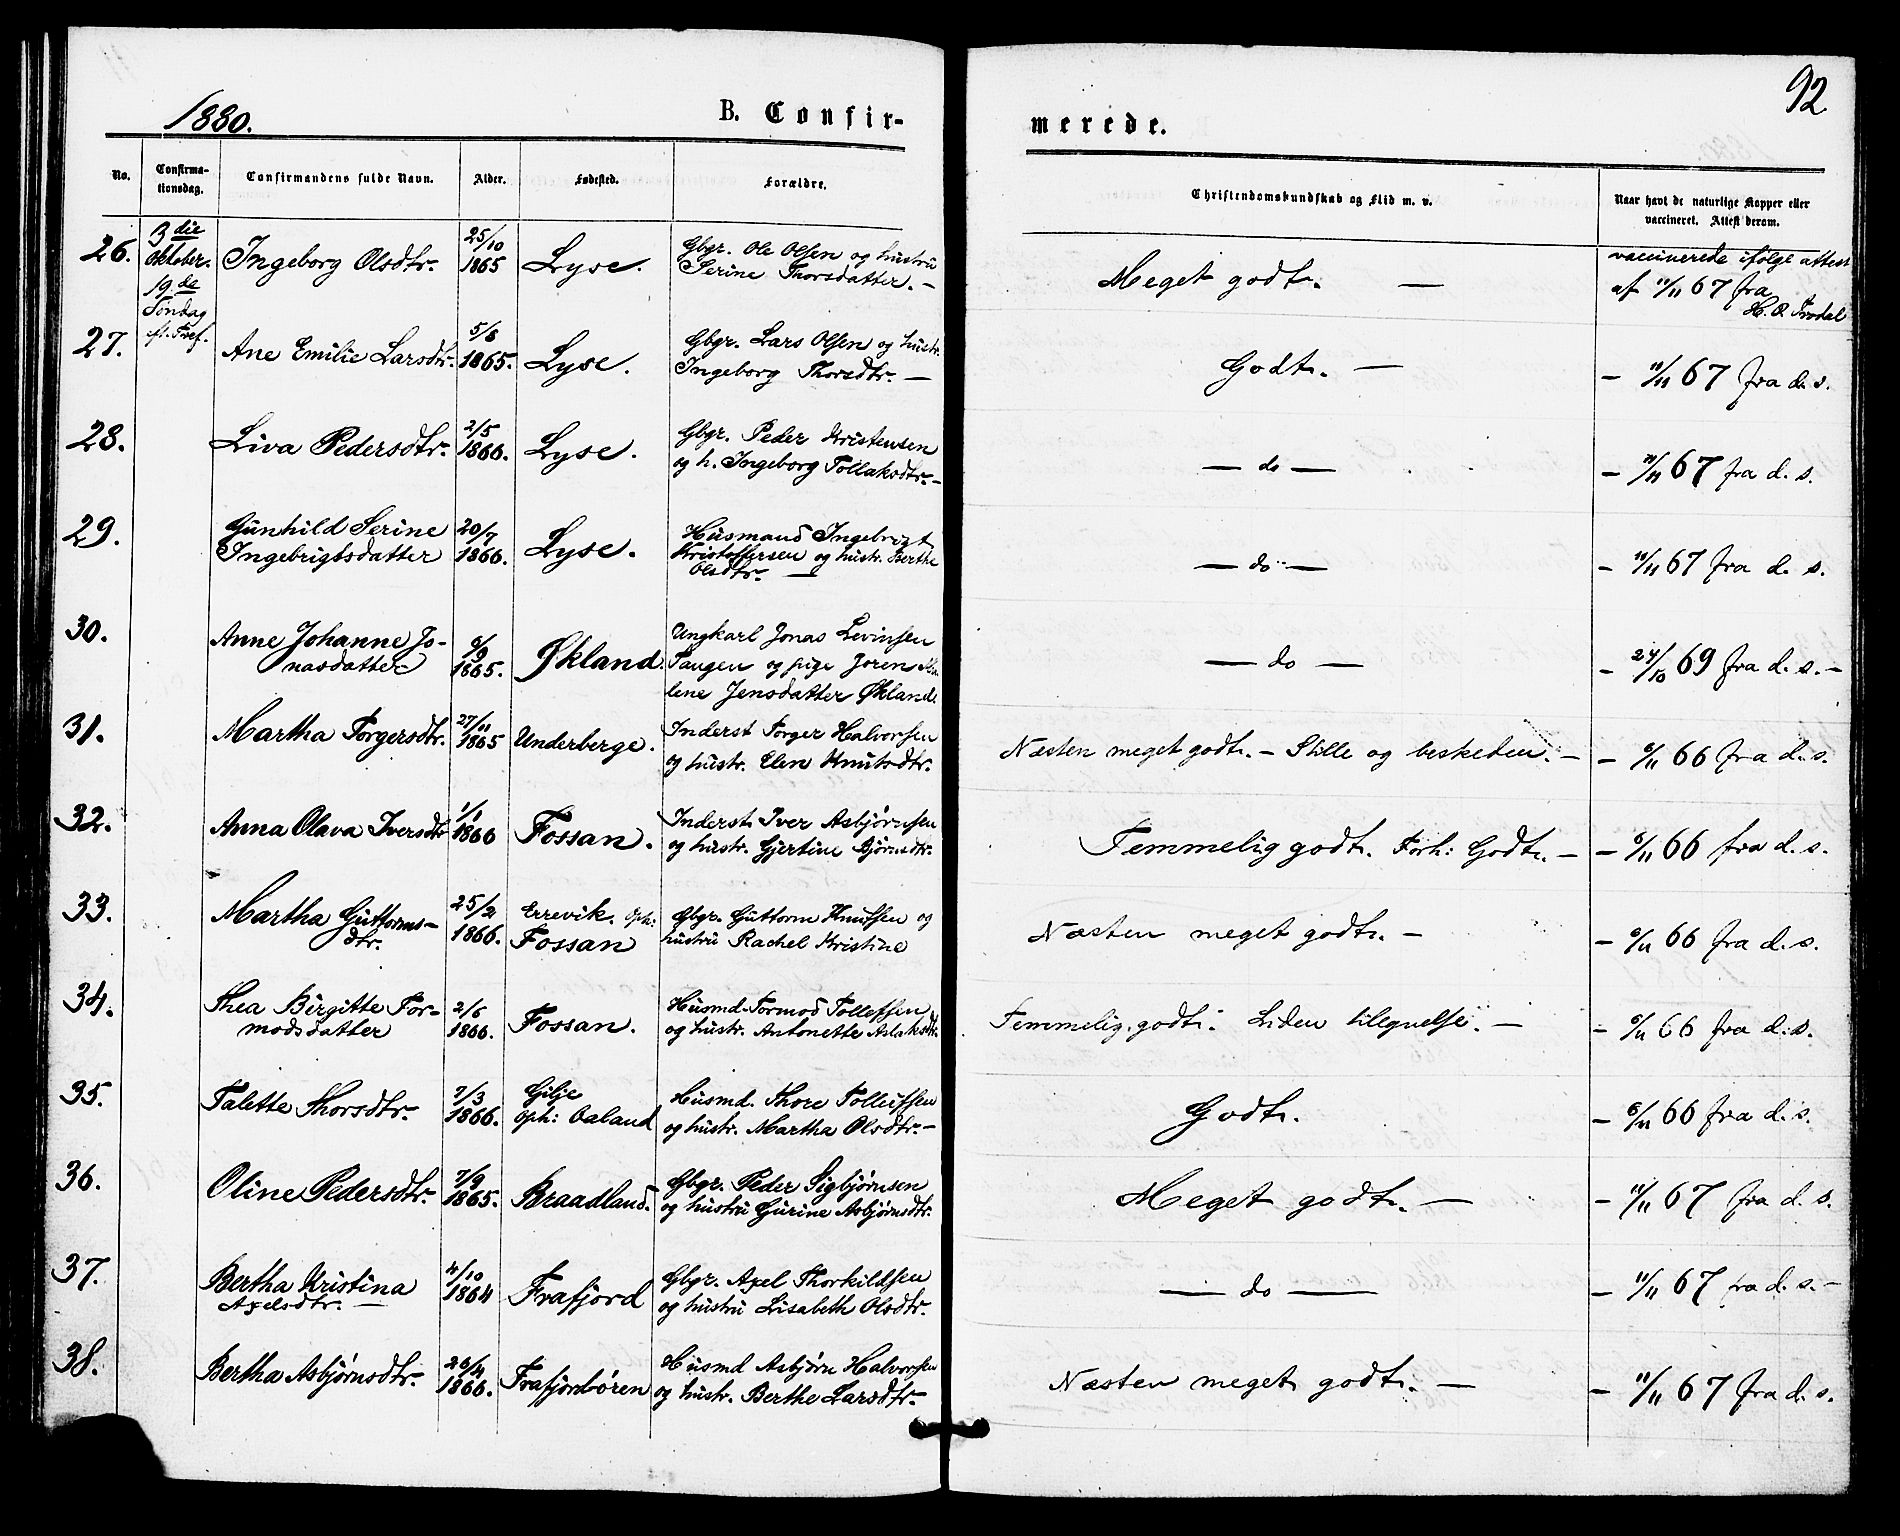 92
1880. B. Confir-merede.
No. Confirma-tionsdag. Confirmandens fulde Navn. Alder. Fødested. Forældre. Christendomskundskab og Flid m. v. Naar havt de naturlige Kopper eller vaccineret. Attest derom.
3die Oktober. 19de Søndag ef. Tref.
26. Ingeborg Olsdtr. 25/10 1865 Lyse. Gbgr. Ole Olsen og hustru
Serine Thorsdatter. — Meget godt. — vaccinerede ifølge attest
af 11/11 67 fra
27. Ane Emilie Larsdtr. 5/8 1865. Lyse. Gbgr. Lars Olsen og hustr.
Ingeborg Thorsdtr. — Godt. — — 11/11 67 fra d. s.
28. Liva Pedersdtr. 2/5 1866. Lyse. Gbgr. Peder Kristensen
og h. Ingeborg Tollaksdtr. — — do — — 11/11 67 fra d. s.
29. Gunhild Serine 20/7 1866. Lyse. Husmand Ingebrigt
Ingebrigtsdatter Kristoffersen og hustr. Berthe
Olsdtr. — — do — — 11/11 67 fra d. s.
30. Anne Johanne Jo- 6/9 1865. Økland Ungkarl Jonas Levinsen
nasdatter Tangen og pige Joren
lene Jensdatter Økland. — do — — 24/10 69 fra d. s. —
31. Martha Torgersdtr. 27/11 1865 Underberge. Inderst Torger Halvorsen
og hustr. Elen Knutsdtr. Næsten meget godt. — Stille og beskeden. — — 6/11 66 fra d. s.
32. Anna Olava Iversdtr 1/1 1866 Fossan. Inderst Iver Asbjørnsen
og hustr. Gjertine Bjørnsdtr. Temmelig godt. Forh: Godt. — — 6/11 66 fra d. s.
33. Martha Guttorms- 25/2 1866. Errevik. Oph: Gbgr. Guttorm Knutsen og
dtr. Fossan hustru Rachel Kristine Næsten meget godt. — — 6/11 66 fra d. s.
34. Thea Birgitte Tor- 2/6 1866. Fossan. Husmd. Tormod Tollefsen
modsdatter og hustr. Antonette Aslaksdtr. Temmelig godt. Liden tilegnelse. — — 6/11 66 fra d. s.
35. Talette Thorsdtr. 7/3 1866. Gilje Husmd. Thore Tollefsen
oph: Oaland og hustr. Martha Olsdtr. — Godt. — 6/11 66 fra d. s.
36. Oline Pedersdtr. 7/9 1865. Braadland. Gbgr. Peder Sigbjørnsen
og hustru Gurine Asbjørnsdtr. Meget godt. — — 11/11 67 fra d. s.
37. Bertha Kristina 4/10 1864 Frafjord Gbgr. Axel Thorkildsen
Axelsdtr. — og hustru Lisabeth Olsdtr. — do — — 11/11 67 fra d. s. —
38. Bertha Asbjørnsdtr. 26/4 1866. Frafjordbøren Husmd Asbjørn Halvorsen
og hustr. Berthe Larsdtr. — Næsten meget godt. — — 11/11 67 fra d. s.